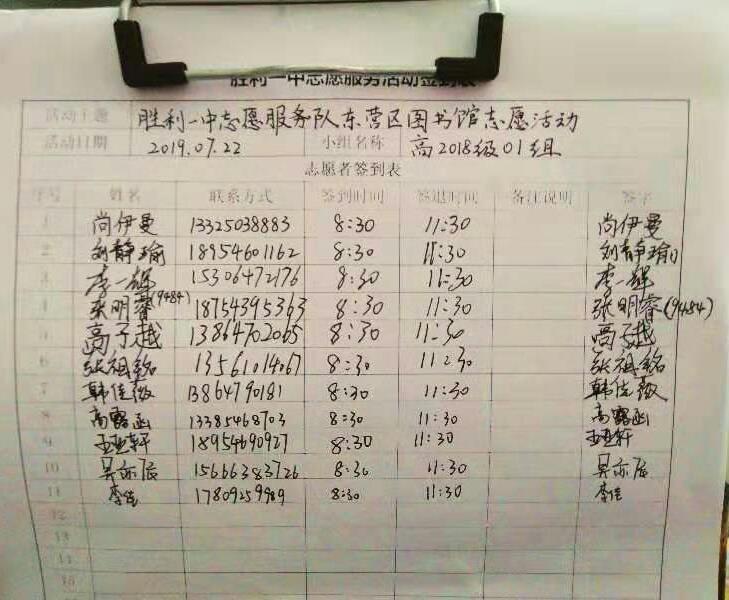 胜利一中志愿服务活动签到表
活动主题 胜利一中志愿服务队东营区图书馆志愿活动
活动日期 2019.07.22 小组名称 高2018级01组
志愿者签到表
序号 姓名 联系方式 签到时间 签退时间 备注说明 签字
1 尚伊曼 13325038883 8:30 11:30 尚伊曼
2 刘静瑜 18954601162 8:30 11:30 刘静瑜
3 李一辉 15306472176 8:30 11:30 李一辉
4 张明睿(9484) 18754395363 8:30 11:30 张明睿(9484)
5 高子越 13864702065 8:30 11:30 高子越
6 张祖铭 13561014067 8:30 11:30 张祖铭
7 韩佳薇 13864790181 8:30 11:30 韩佳薇
8 高露函 13385468703 8:30 11:30 高露函
9 王亚轩 18954690927 8:30 11:30 王亚轩
10 吴亦辰 15666383726 8:30 11:30 吴亦辰
11 李佳 17809259989 8:30 11:30 李佳
12
13
14
15